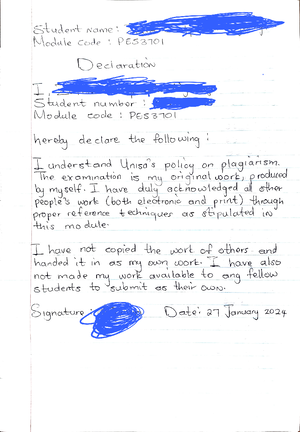 Student name :
Module code : PES3701
Declaration
I
Student number :
Module code : PES3701
hereby declare the following :
I understand Unisa's policy on plagiarism.
The examination is my original work, produced
by myself. I have duly acknowledged all other
people's work (both electronic and print) through
proper reference techniques as stipulated in
this module.
I have not copied the work of others and
handed it in as my own work. I have also
not made my work available to any fellow
students to submit as their own.
Signature : Date: 27 January 2024